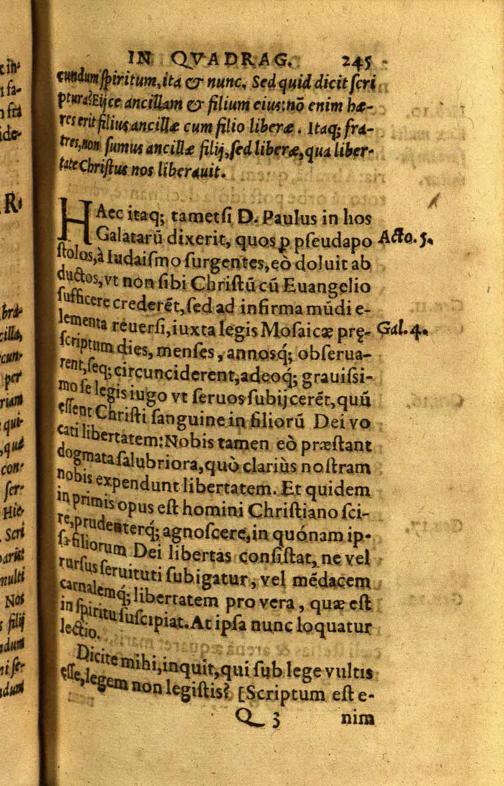 IN QVADRAG. 245
cundum ſpiritum, ita & nunc. Sed quid dicit ſcri
ptura? Eijce ancillam & filium eius: nõ enim hæ-
res erit filius ancillæ cum filio liberæ. Itaq; fra-
tres, non ſumus ancillæ filij, ſed liberæ, qua liber-
tate Chriſtus nos liberauit.
HAec itaq; tametſi D. Paulus in hos
Galatarũ dixerit, quos ꝑ pſeudapo
Acto. 5.
ſtolos, à Iudaiſmo ſurgentes, eò doluit ab
ductos, vt non ſibi Chriſtũ cũ Euangelio
ſufficere crederẽt, ſed ad infirma mũdi e-
lementa reuerſi, iuxta legis Moſaicæ prę-
Gal. 4.
ſcriptum dies, menſes, annosq; obſerua-
rent, ſeq; circunciderent, adeoq; grauiſsi-
mo ſe legis iugo vt ſeruos ſubijcerẽt, quũ
eſſent Chriſti ſanguine in filiorũ Dei vo
cati libertatem: Nobis tamen eò præſtant
dogmata ſalubriora, quò clariùs noſtram
nobis expendunt libertatem. Et quidem
in primis opus eſt homini Chriſtiano ſci-
re, prudenterq; agnoſcere, in quónam ip-
ſa filiorum Dei libertas conſiſtat, ne vel
rurſus ſeruituti ſubigatur, vel mẽdacem
carnalemq; libertatem pro vera, quæ eſt
in ſpiritu ſuſcipiat. At ipſa nunc loquatur
lectio.
Dicite mihi, inquit, qui ſub lege vultis
eſſe, legem non legiſtis? [Scriptum eſt e-
Q 3 nim